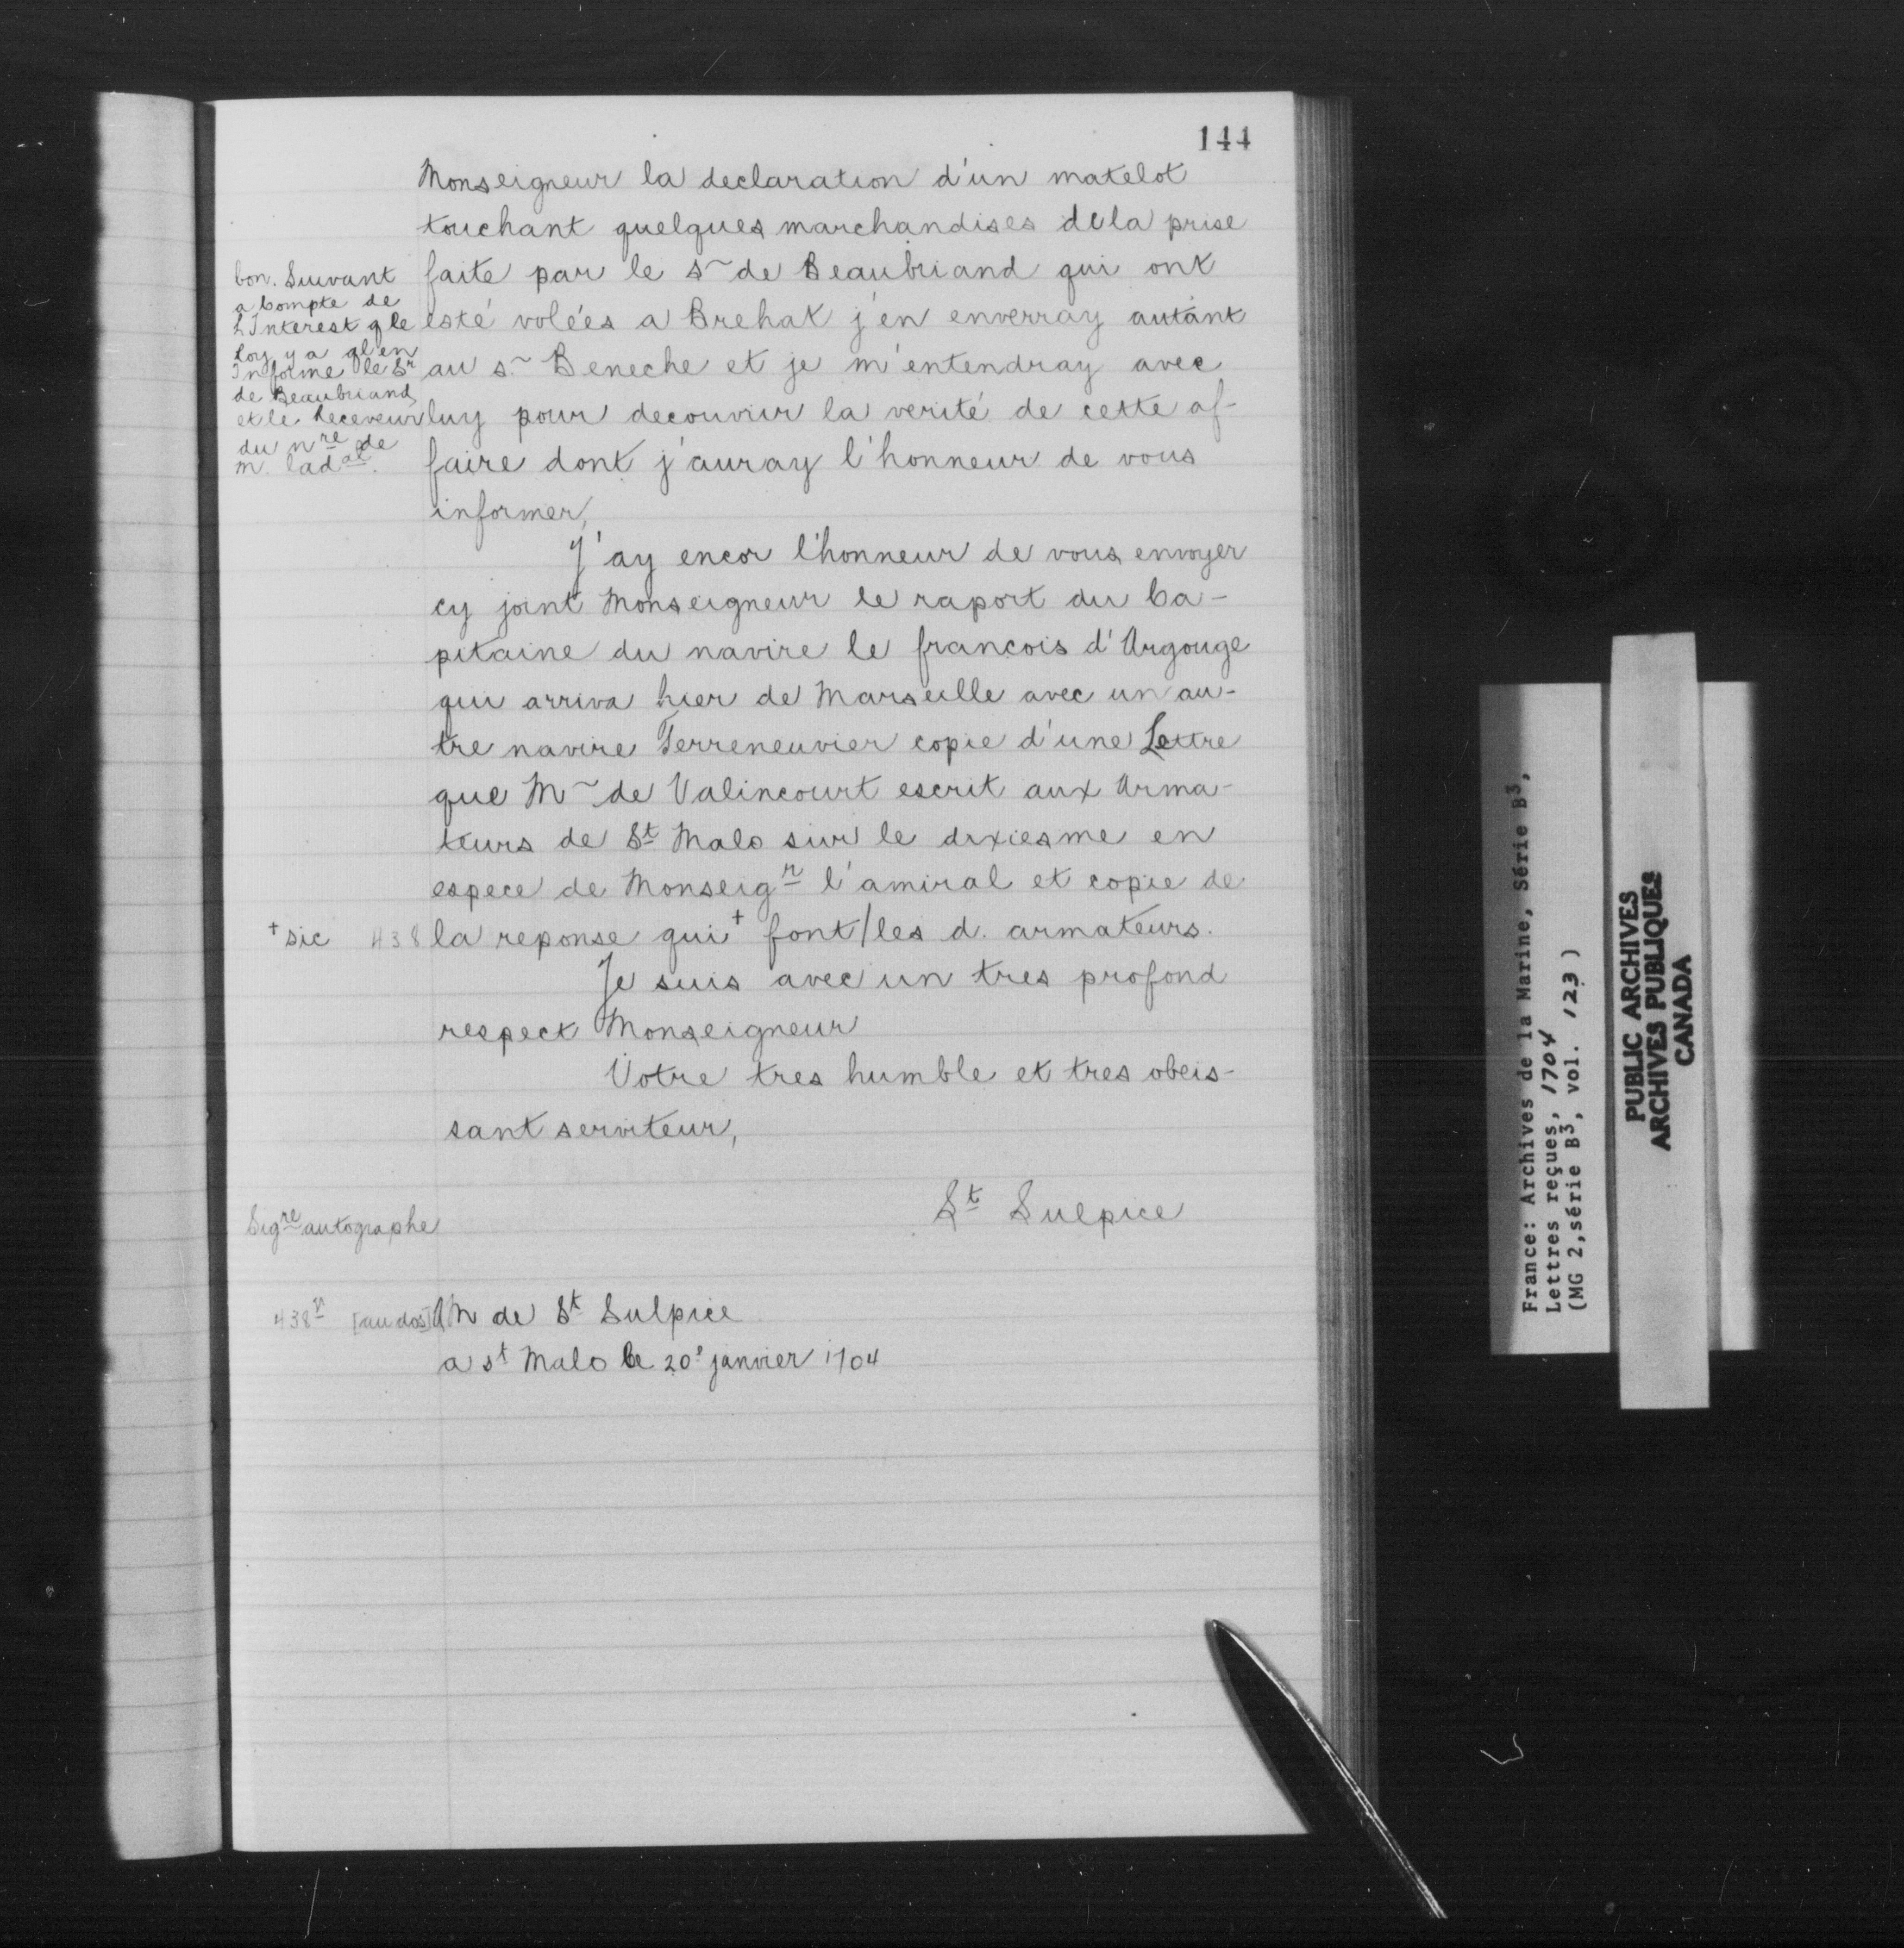 144
Monseigneur la declaration d'un matelot
touchant quelques marchandises de la prise
faite par le s~ de Beaubriand qui ont
esté volées a Brehat j'en enverray autant
au s~ Beneche et je m'entendray avec
luy pour decouvrir la verité de cette af-
faire dont j'auray l'honneur de vous
informer,
bon. Suivant
a compte de
L'Interest q le
Roy y a qlen
Informe le Sr
de Beaubriand
et le Receveur
du nre de
m. ladal.
J'ay encor l'honneur de vous envoyer
cy joint Monseigneur le raport du Ca-
pitaine du navire le francois d'Argouge
qui arriva hier de Marseille avec un au-
tre navire Terreneuvier copie d'une Lettre
que M~ de Valincourt escrit aux Arma-
teurs de St Malo sur le dixiesme en
espece de Monseigr l'amiral et copie de
+ sic 438 la reponse qui+ font/les d. armateurs.
Je suis avec un tres profond
respect Monseigneur
Votre tres humble et tres obeis-
sant serviteur,
St Sulpice
Sigre autographe
438v [au dos] M de St Sulpice
a st Malo le 20e janvier 1704
France: Archives de la Marine, Série B3,
Lettres reçues, 1704
(MG 2, série B3, vol. 123)
PUBLIC ARCHIVES
ARCHIVES PUBLIQUES
CANADA